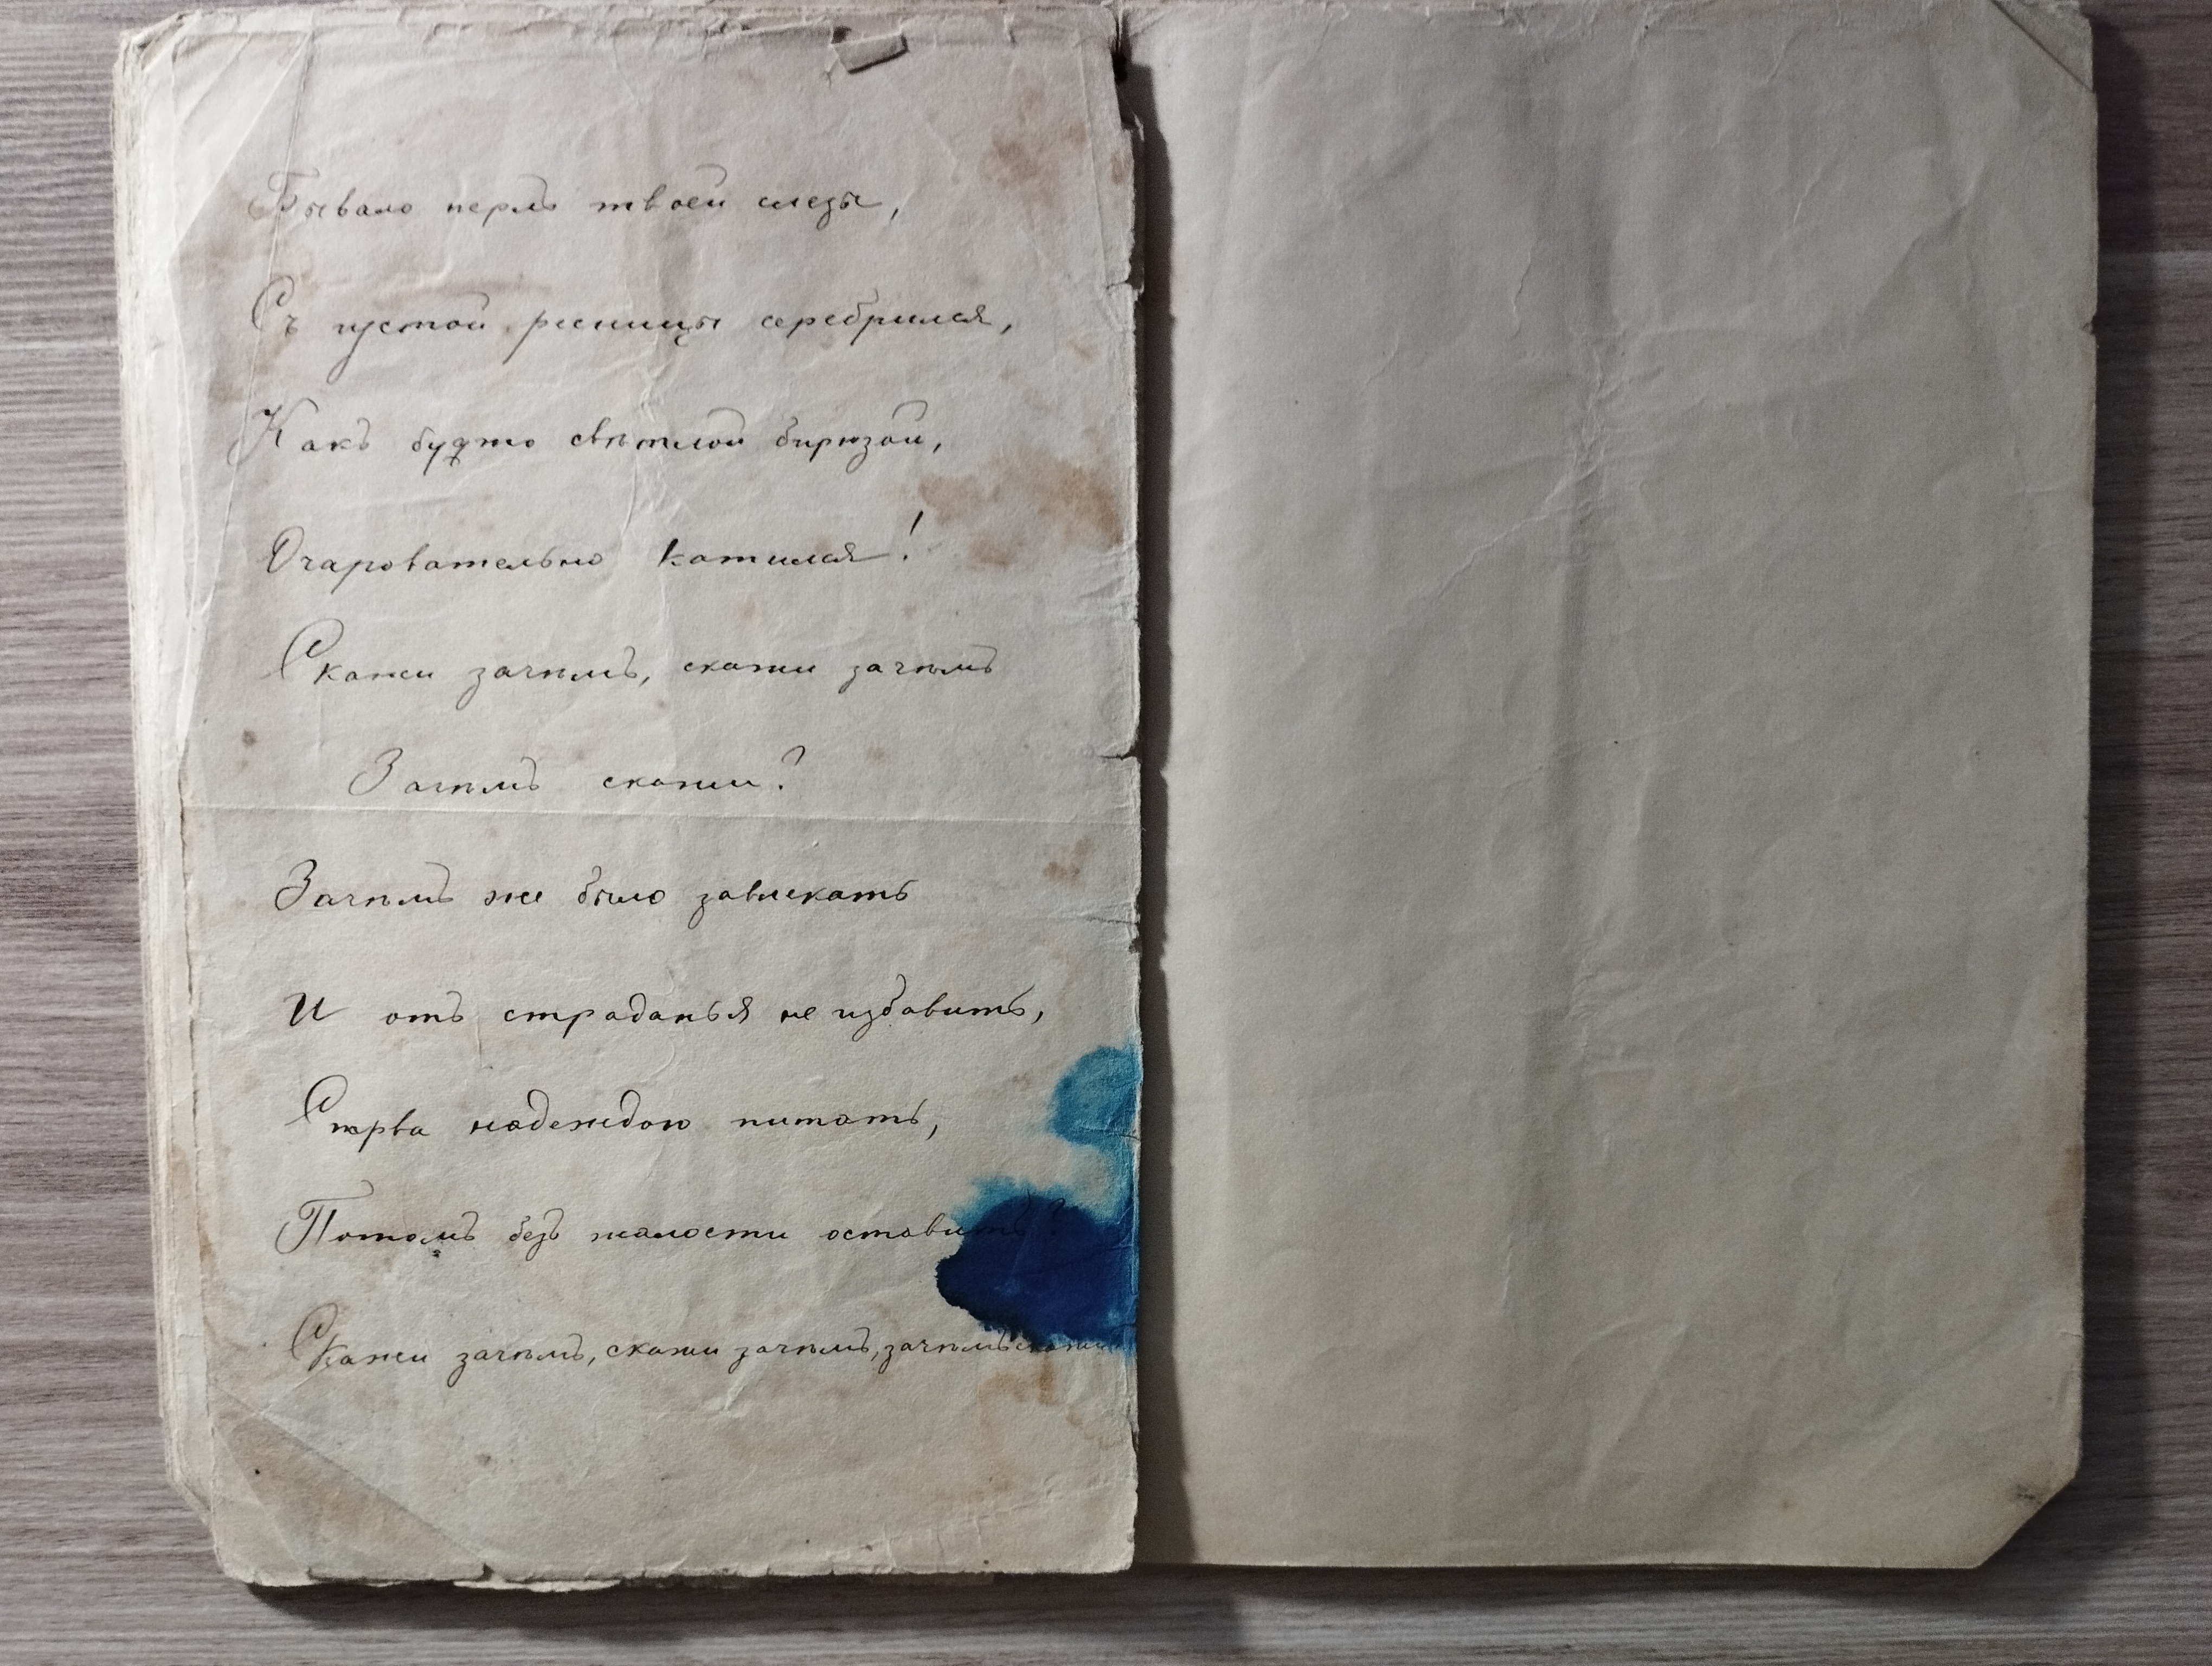 Бывало перлъ твоей слезы,
Съ густой ресницы серебрился,
Какъ будто свѣтлой бирюзой,
Очаровательно катился!
Скажи зачѣмъ, скажи зачѣмъ
Зачѣмъ скажи?
Зачѣмъ же было завлекать
И отъ страданья не избавить,
Сперва надеждою питать,
Потомъ безъ жалости оставить?
Скажи зачѣмъ, скажи зачѣмъ, зачѣмъ скажи